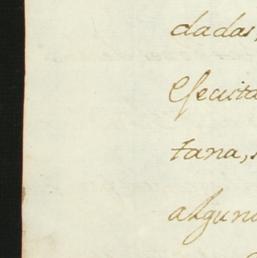 dadas,
Efecuta
tana, s
alguno